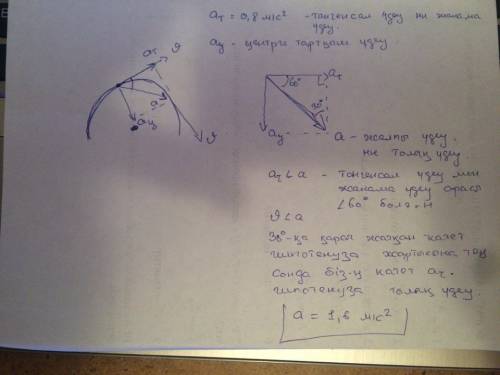 aτ = 0,8 м/с² - тангенсал үдеу не жанама
үдеу.
aц - центрге тартқыш үдеу.
aτ ϑ
a
aц
ϑ
60° aτ
30°
aц
a - жалпы үдеу.
не толық үдеу.
aτ ∠ a - тангенсал үдеу мен
жанама үдеу арасы
∠60° болғ-н
ϑ ∠ a
30°-қа қарсы жатқан катет
гипотенуза жартысына тең
Сонда біз-ң катет aτ.
гипотенуза толық үдеу.
a = 1,6 м/с²